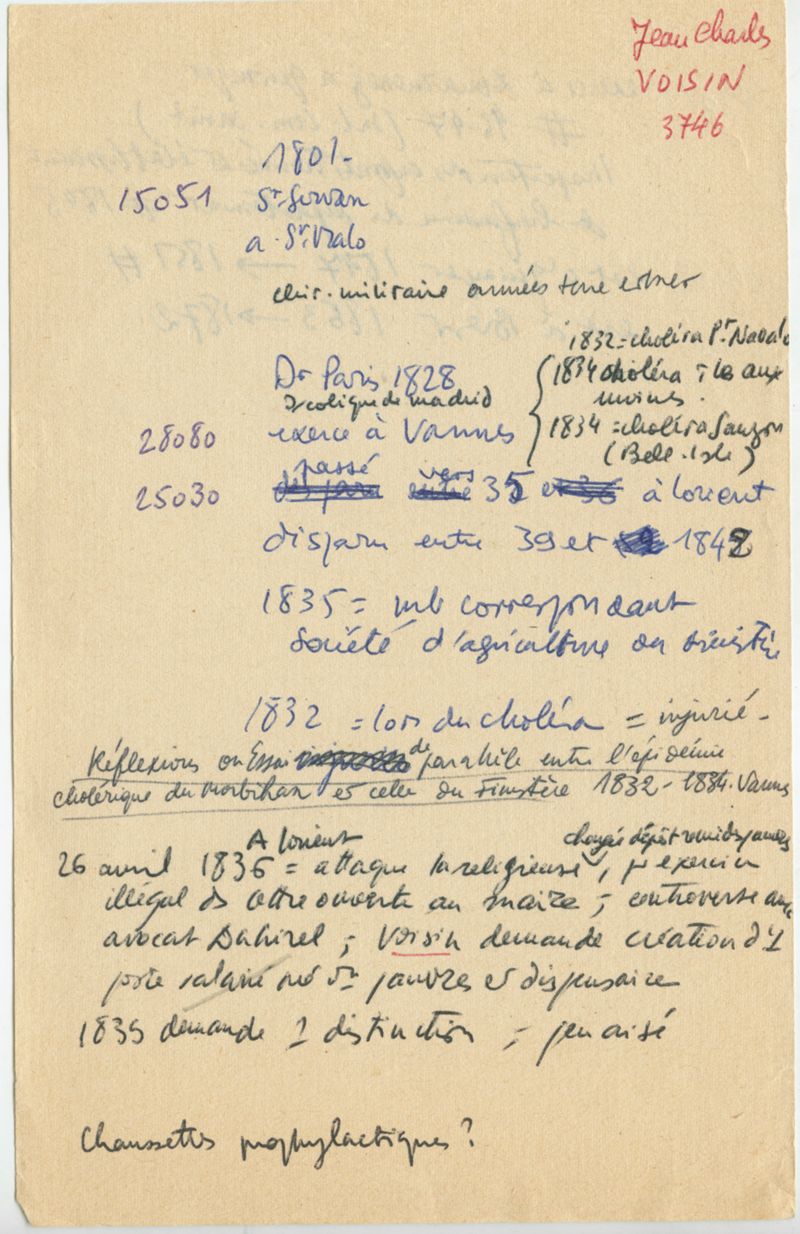 Jean Charles
VOISIN
3746
1801-
15051 St. Servan
a St. Malo
chir. militaire armées terre et mer
1832 = choléra Pt. Navalo
Dr Paris 1828
1834 choléra Ile aux
moines.
S/colique de madrid
28080 exerce à Vannes
1834 = choléra Sauzon
(Belle-Isle)
passé vers
25030 entre 35 et 36 à lorient
disparu entre 39 et 1842
1835 = mb correspondant
Société d'agriculture du finistère
1832 = lors du choléra = injurié -
Réflexions ou Essai de parallèle entre l'épidémie
cholérique du Morbihan et celle du Finistère 1832-1834. Vannes
A lorient
chargée dépôt remèdes pauvres
26 avril 1836 = attaque la religieuse, pr exercice
illégal ds lettre ouverte au maire ; controverse avec
avocat Dahirel ; Voisin demande création d'1
poste salarié méd pr pauvres et dispensaire
1839 demande 1 distinction ; peu aisé
Chaussettes prophylactiques ?